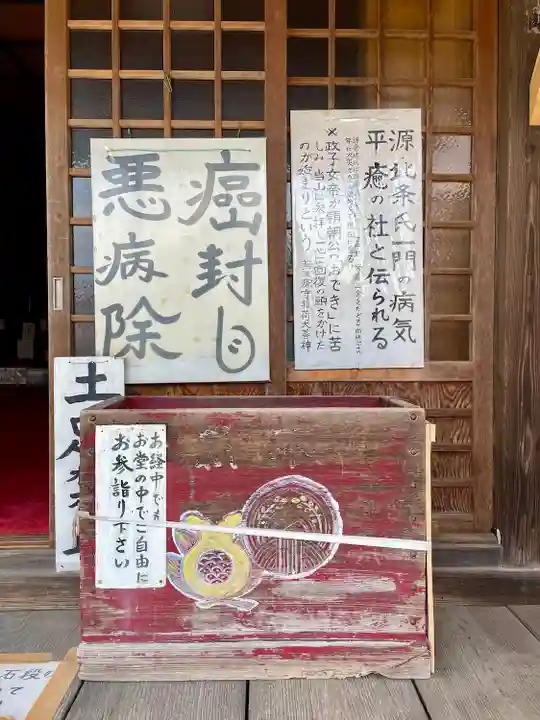 源北条氏一門の病気
平癒の社と伝られる
※政子女帝が頼朝公の「おでき」に苦
しみ当山に参拝し一心に回復の願をかけた
のが始まりという
癌封じ
悪病除
土足
お経中でも
お堂の中でご自由に
お参詣り下さい
石段の